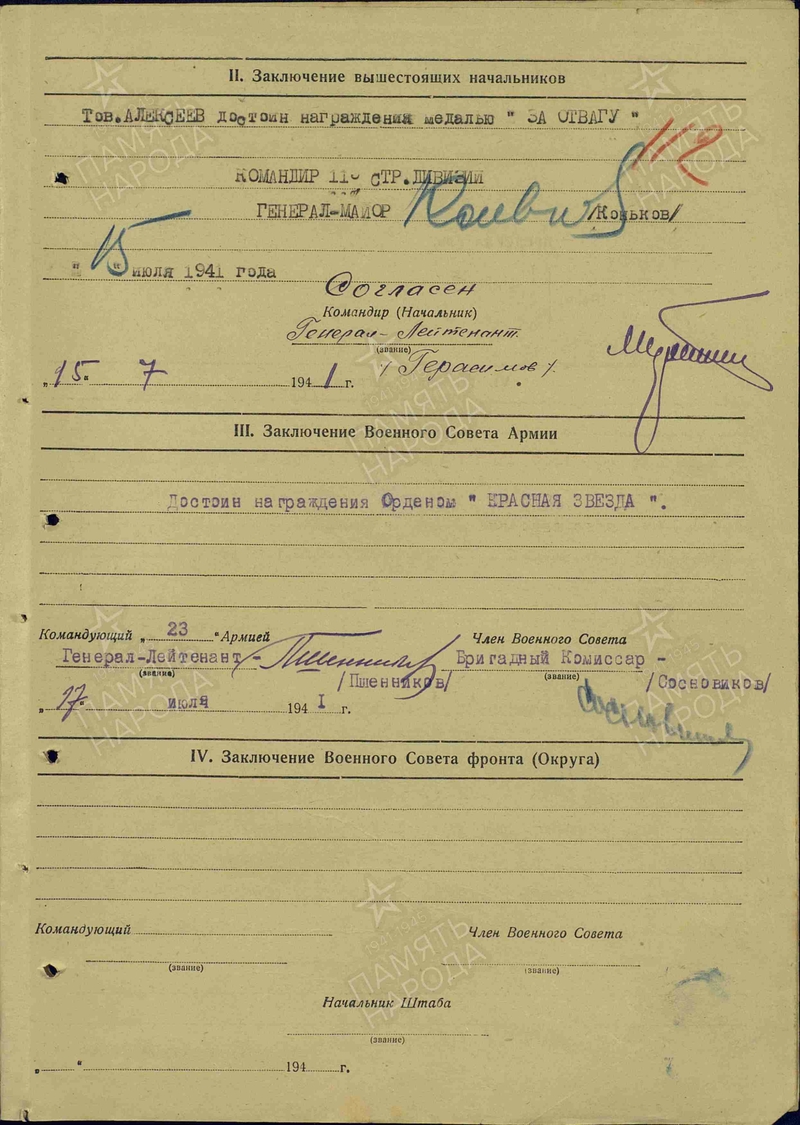 II. Заключение вышестоящих начальников
Тов.АЛЕКСЕЕВ достоин награждения медалью " ЗА ОТВАГУ "
112
КОМАНДИР 115 СТР.ДИВИЗИИ
ГЕНЕРАЛ-МАЙОР /Коньков/
" 15 " июля 1941 года
Согласен
Командир (Начальник)
Генерал-Лейтенант
(звание)
/Герасимов/.
„15" 7 1941 г.
III. Заключение Военного Совета Армии
Достоин награждения Орденом " КРАСНАЯ ЗВЕЗДА ".
Командующий „ 23 " Армией Член Военного Совета
Генерал-Лейтенант - Бригадный Комиссар -
(звание) (звание)
/Пшенников/ /Сосновиков/
„17. июля 194I г.
IV. Заключение Военного Совета фронта (Округа)
Командующий Член Военного Совета
(звание) (звание)
Начальник Штаба
(звание)
„ " 194 г.
ПАМЯТЬ НАРОДА